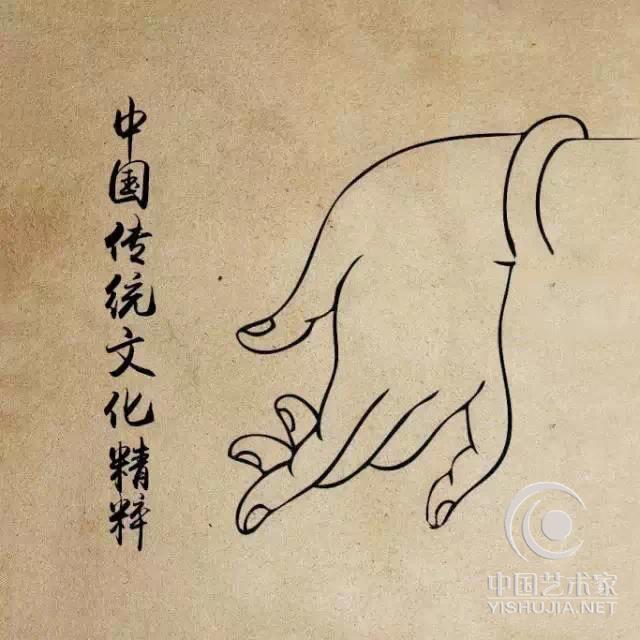 中国传统文化精粹
中国艺术家
YISHUJIA.NET